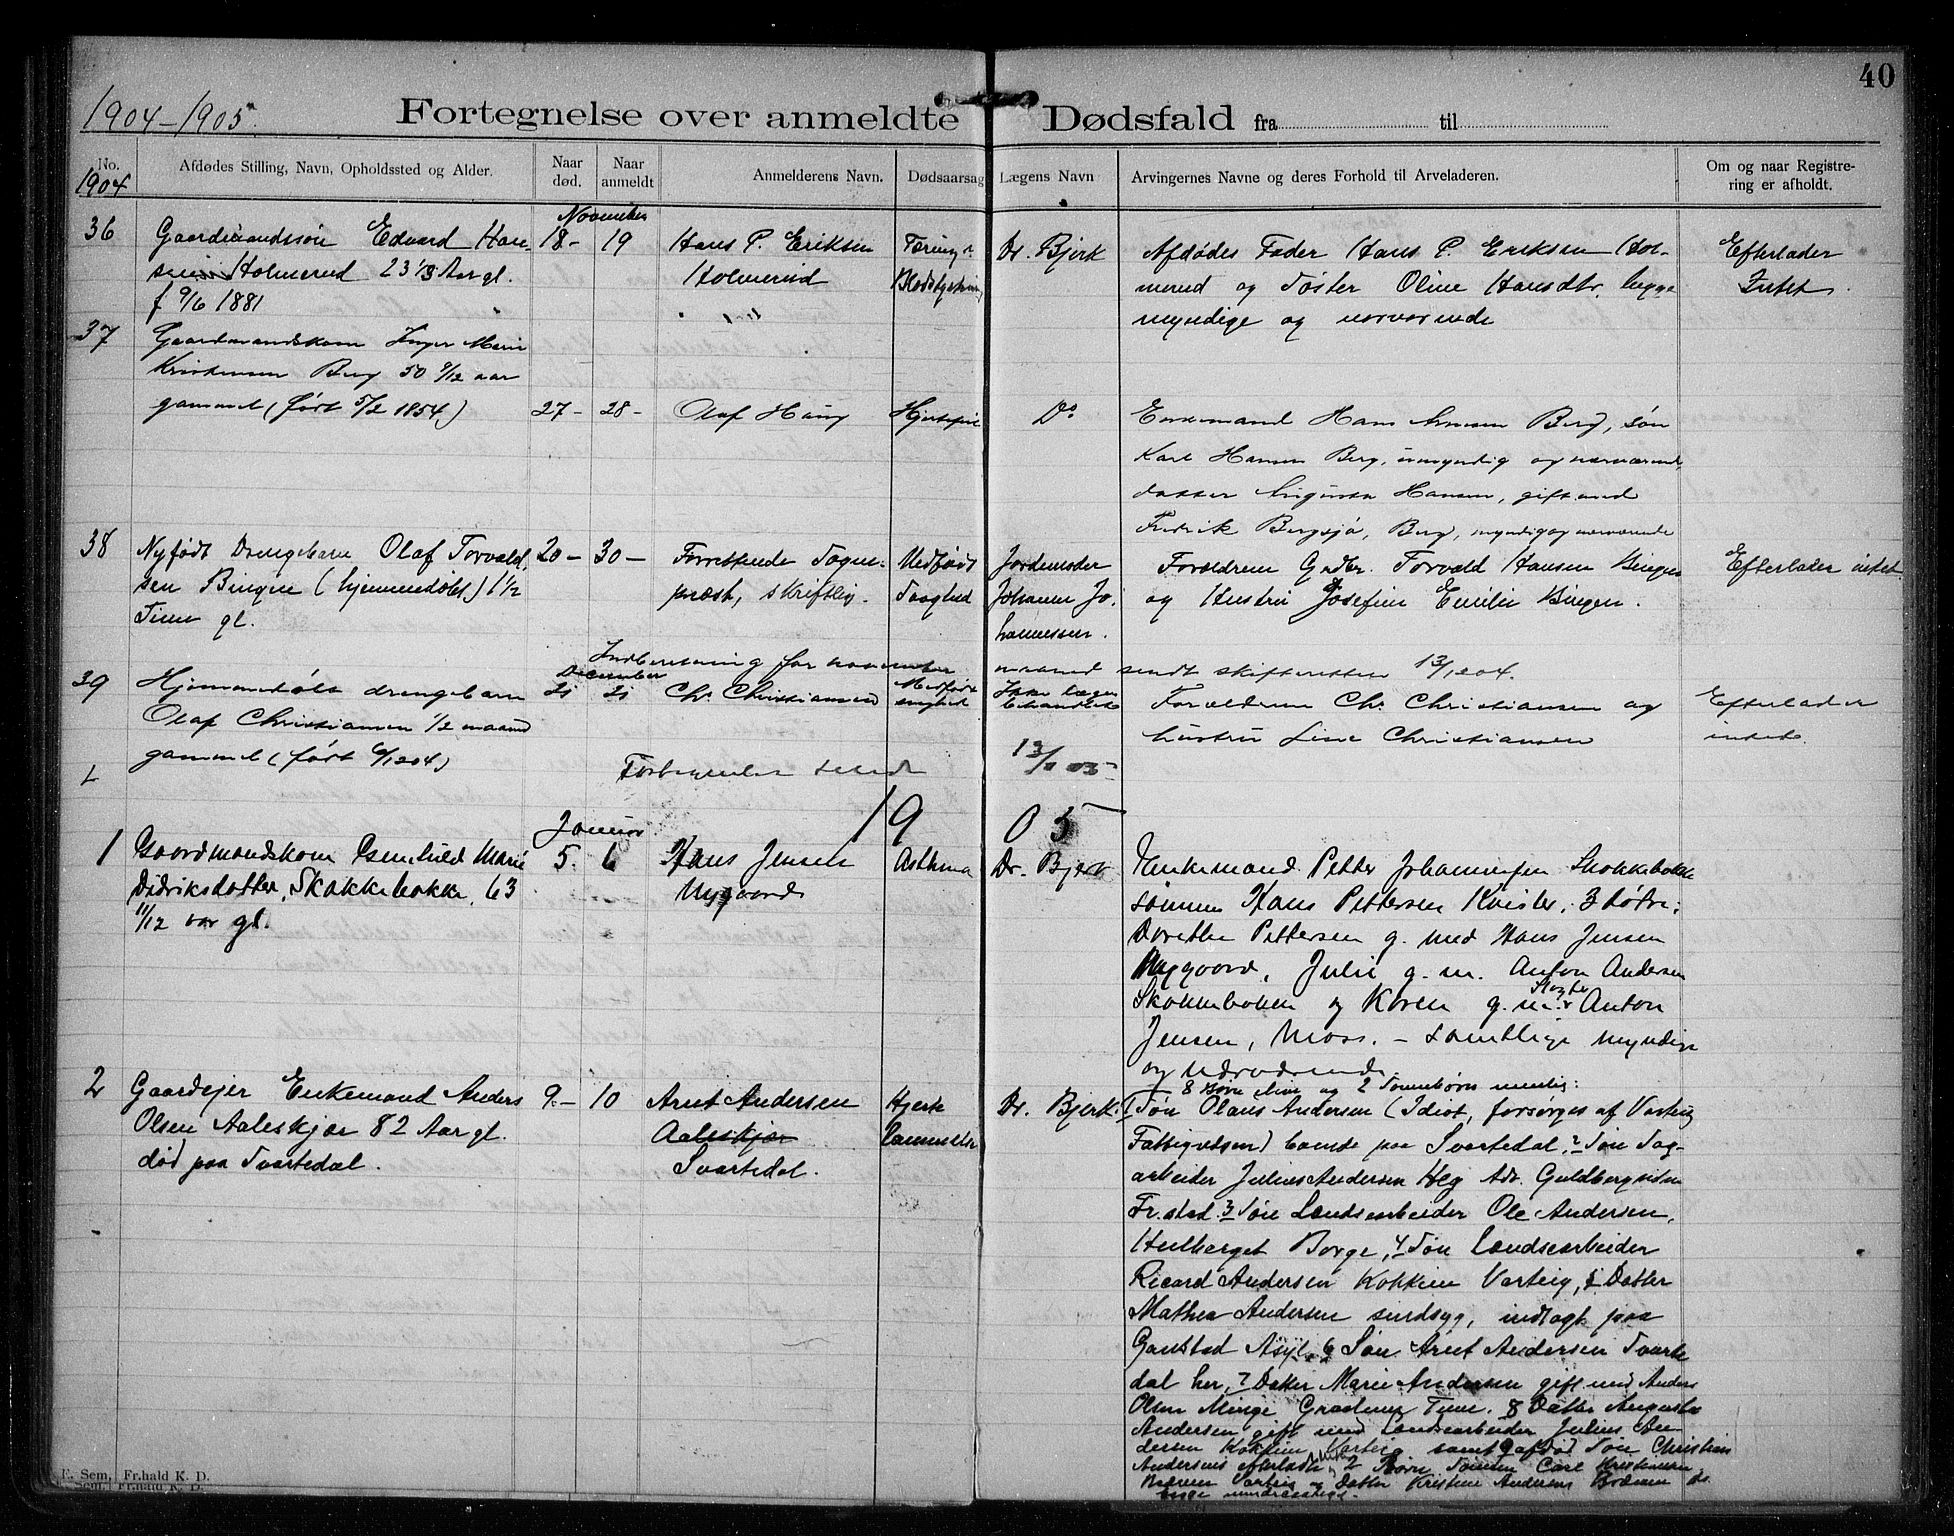 40
1904-1905.
Fortegnelse over anmeldte Dødsfald fra til
No.
1904
Afdødes Stilling, Navn, Opholdssted og Alder.
Naar død.
Naar anmeldt
Anmelderens Navn.
Dødsaarsag
Lægens Navn
Arvingernes Navne og deres Forhold til Arveladeren.
Om og naar Registre-
ring er afholdt.
November
36 Gaardmandssøn Edvard Han- 18- 19 Hans P. Eriksen Tæring Dr. Bjerk Afdødes Fader Hans P. Eriksen Hol- Efterlader
sen Holmerud 23 1/3 Aar gl. Holmerud merud og Søster Oline Hansdtr, begge Intet
f 9/6 1881 myndige og nærværende
37 Gaardmandskone Inger Marie
Kristensen Berg 50 9/12 aar
gammel (født 5/2 1854) 27- 28- Olaf Haug Hjertefeil Do Enkemand Hans Berg, søn
Karl Hansen Berg, umyndig og nærværende,
datter Augusta Hansen, gift med
Fredrik Bergsjø, Berg, myndig og nærværende
38 Nyfødt Drengebarn Olaf Torvald- 20- 30- Forrettende Sogne- Medfødt Jordemoder Forældrene Gmdbr. Torvald Hansen Bingen Efterlader intet
sen Bingen (hjemmedøbt) 1½ præst, skriftlig. Svaghed Johanne Jo- og Hustru Josefine Emilie Bingen.
Time gl. hannessen.
Indberetning for november maaned sendt skifteretten 13/12 04.
December
39 Hjemmedøbt drengebarn 21 21 Chr. Christiansen Medfødt svaghed Ikke læge- behandlet Forældrene Chr. Christiansen og Efterlader
Olaf Christiansen 1/2 maaned hustru Line Christiansen intet.
gammel (født 6/12 04)
Fortegnelse sendt 13/1 05
1905
Januar
1 Gaardmandskone Marie 5. 6 Hans Jensen Asthma Dr. Bjerk Enkemand Petter Johannesen Skakkebakke
Didriksdatter, Skakkebakke, 63 Nygaard sønnen Hans Pettersen Kvister, 3 døtre:
11/12 aar gl. Dorethe Pettersen g. med Hans Jensen
Nygaard, Julie g. m. Anton Andersen
Skakkebakke og Karen g. m. Anton
Jensen, Moss. - samtlige myndige
og nærværende
8 Børn og 2 Sønnebørn nemlig:
2 Gaardejer Enkemand Anders 9- 10 Arnt Andersen Hjerte Dr. Bjerk. 1 Søn Olaus Andersen (Idiot, forsørges af Varteig
Olsen Aaleskjær 82 Aar gl. Aaleskjær lammelse Fattigvæsen) boende paa Svartedal, 2 Søn Dag-
død paa Svartedal. Svartedal. arbeider Julius Andersen Heg Adr. Guldbergsiden
Fr.stad 3 Søn Landsearbeider Ole Andersen,
Borge, 4 Søn Landsearbeider
Ricard Andersen Kokkim Varteig, 5 Datter
Mathea Andersen sindsyg, indlagt paa
Gaustad Asyl 6 Søn Arnt Andersen Svarte
dal her, 7 Datter Marie Andersen gift med Anders
Olsen Minge Tune. 8 Datter Augusta
Andersen gift med Landsearbeider Julius An-
dersen Kokkim Varteig samt afdød Søn Christian
Andersens efterladte 2 Børn Sønnen Carl Kristiansen
Varteig og Datter Kristine Andersen do.
E. Sem, Fr.hald K. D.